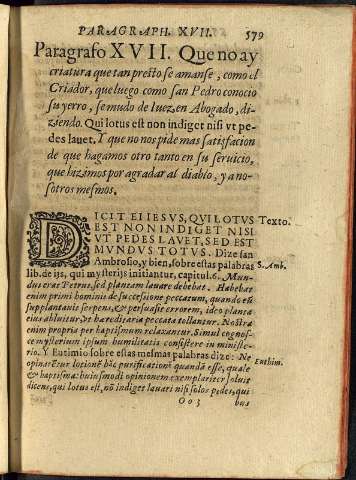 PARAGRAPH. XVII. 579
Paragrafo XVII. Que no ay
criatura que tan presto se amanse, como el
Criador, que luego como san Pedro conocio
su yerro, se mudo de Iuez, en Abogado, di-
ziendo. Qui lotus est non indiget nisi vt pe-
des lauet. Y que no nos pide mas satisfacion
de que hagamos otro tanto en su seruicio,
que hizimos por agradar al diablo, y a no-
sotros mesmos.
DICIT EI IESVS, QVI LOTVS Texto.
EST NON INDIGET NISI
VT PEDES LAVET, SED EST
MVNDVS TOTVS. Dize san
Ambrosio, y bien, sobre estas palabras S. Amb.
lib. de ijs, qui mysterijs initiantur, capitul. 6. Mun-
dus erat Petrus, sed plantam lauare debebat. Habebat
enim primi hominis de successione peccatum, quando eũ
supplantauit serpens, & persuasit errorem, ideo planta
eius abluitur, vt hæreditaria peccata tollantur. Nostra
enim propria per baptismum relaxantur. Simul cognos-
ce mysterium ipsum humilitatis consistere in ministe-
rio. Y Eutimio sobre estas mesmas palabras dize: Ne Euthim.
opinarẽtur lotionẽ hãc purificationẽ quandã esse, quale
& baptisma: huiusmodi opinionem exemplariter soluit
dicens, qui lotus est, nõ indiget lauari nisi solos pedes, qui
Oo 3 bus